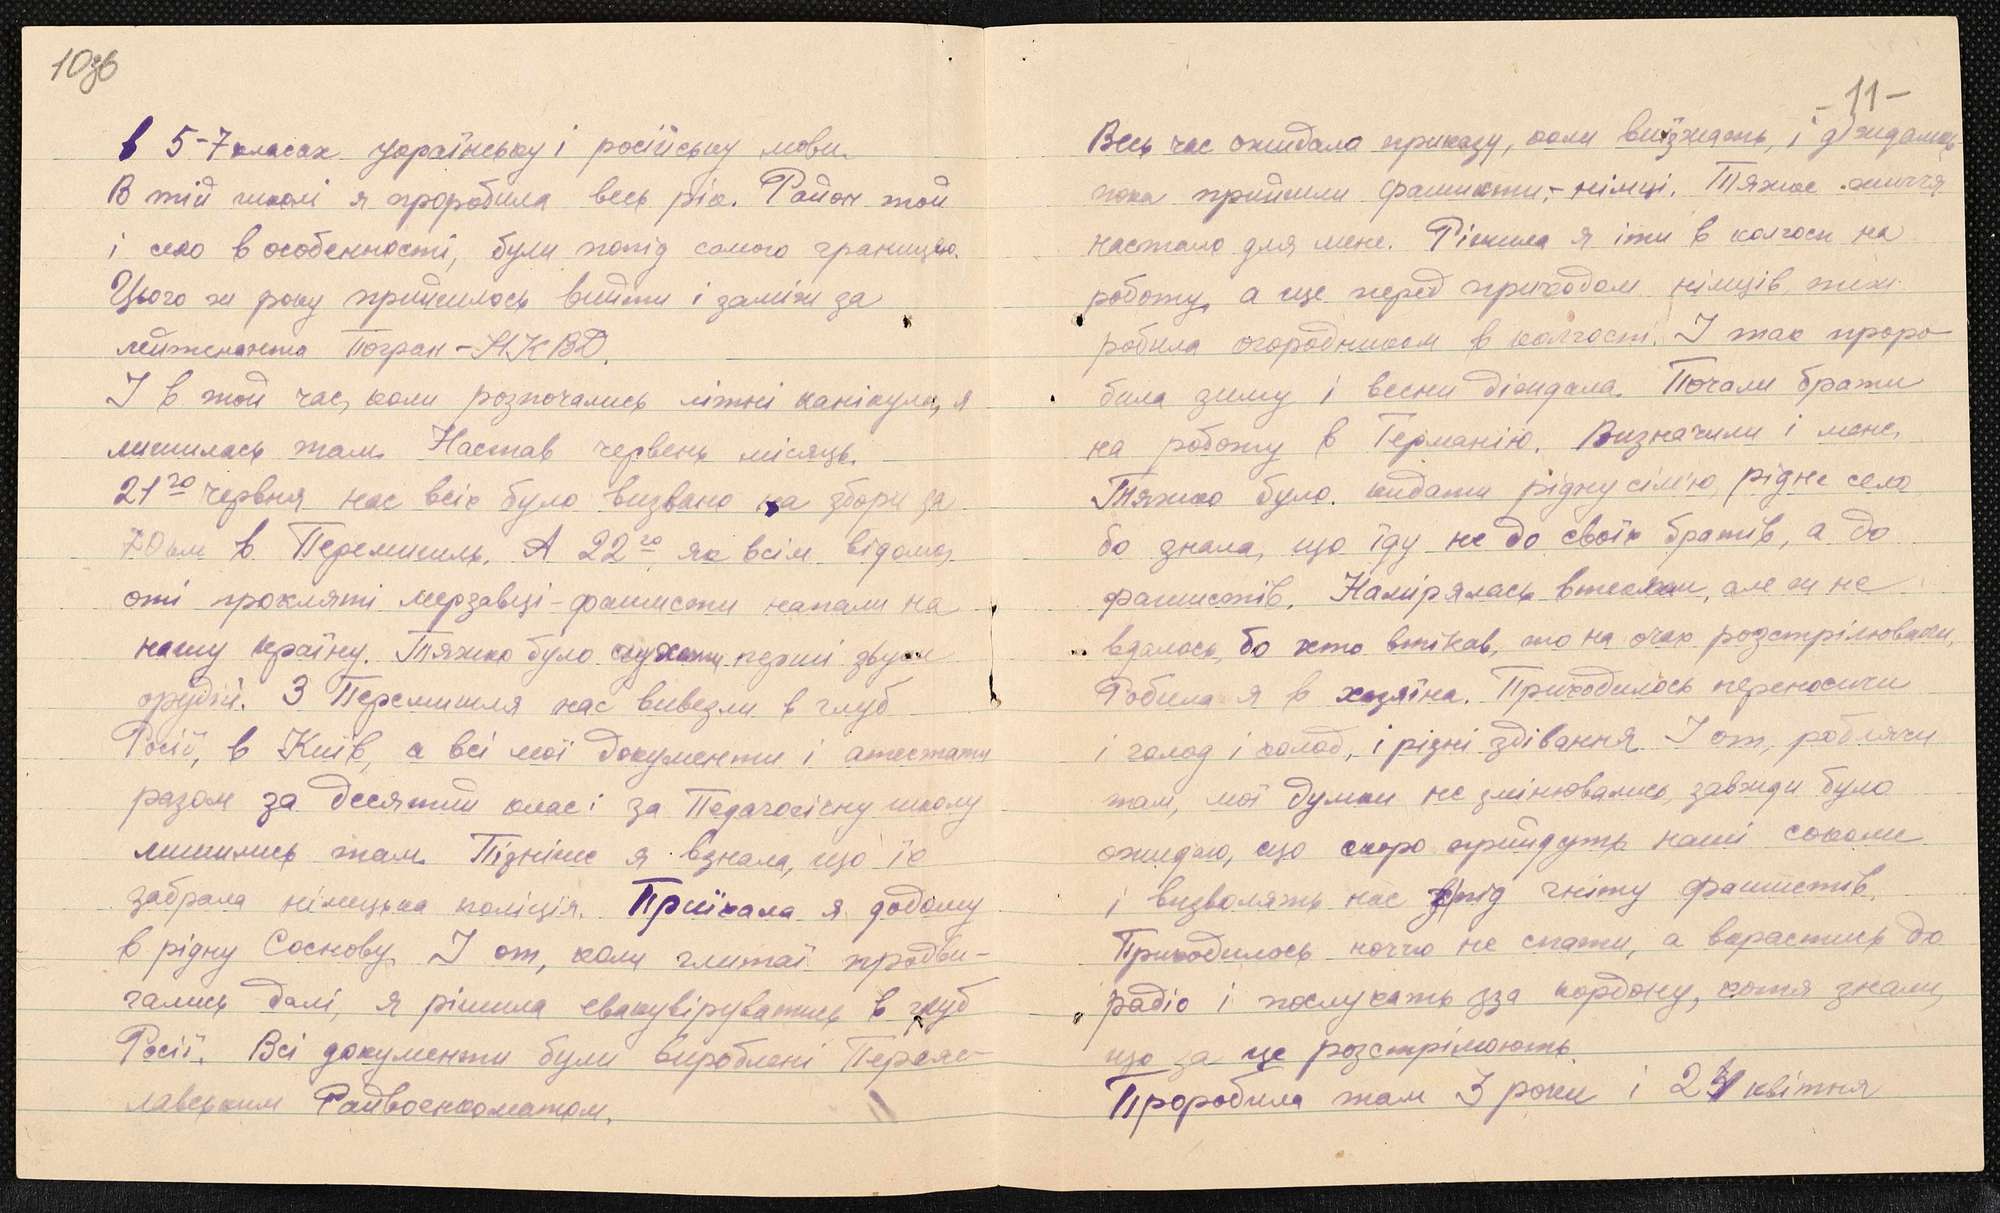 10зв
в 5-7 класах українську і російську мови.
В тій школі я проробила весь рік. Район той
і село в особенності, були попід самою границею.
Цього ж року прийшлось вийти і заміж за
лейтенанта Погран-НКВД.
І в той час, коли розпочались літні канікули, я
лишилась там. Настав червень місяць.
21го червня нас всіх було визвано на збори за
70 км в Перемишль. А 22го, як всім відомо,
оті прокляті мерзавці-фашисти напали на
нашу країну. Тяжко було слухати перші звуки
орудій. З Перемишля нас вивезли в глуб
Росії, в Київ, а всі мої документи і атестати
разом за десятий клас і за Педагогічну школу
лишились там. Пізніше я взнала, що їх
забрала німецька поліція. Приїхала я додому
в рідну Соснову. І от, коли глитаї продви-
гались далі, я рішила евакувіруватись в глуб
Росії. Всі документи були вироблені Переяс-
лавським Райвоєнкоматом.
-11-
Весь час ожидала приказу, коли виїзжать, і діждалась
поки прийшли фашисти-німці. Тяжке життя
настало для мене. Рішила я іти в колгосп на
роботу, а ще перед приходом німців теж
робила огородником в колгоспі. І так проро-
била зиму і весни діждала. Почали брати
на роботу в Германію. Визначили і мене.
Тяжко було кидати рідну сім'ю, рідне село
бо знала, що їду не до своїх братів, а до
фашистів. Намірялась втекти, але ж не
вдалось, бо хто втікав, то на очах розстрілювали.
Робила я в хазяїна. Приходилось переносити
і голод і холод, і різні здівання. І от, роблячи
там, мої думки не змінювались, завжди було
ожидаю, що скоро прийдуть наші соколи
і визволять нас з під гніту фашистів.
Приходилось ноччю не спати, а вкрастись до
радіо і послухать зза кордону, хотя знали,
що за це розстрілюють.
Проробила там 3 роки і 23 квітня